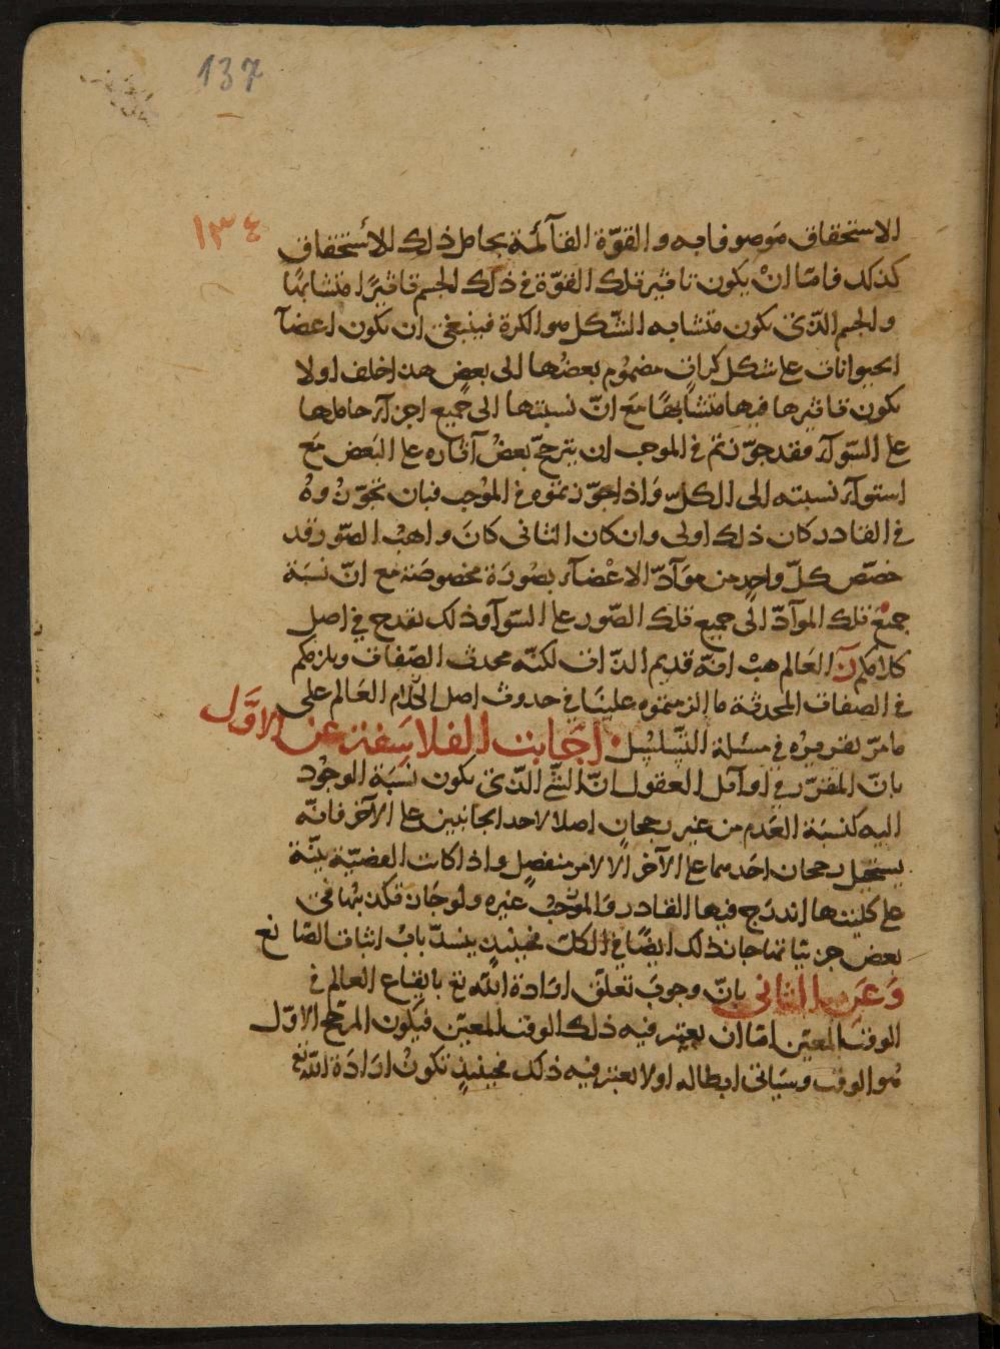 137
١٣٤
الاستحقاق موصوفا به والقوّة القآئمة بحامل ذلك الاستحقاق
كذلك فامّا انْ يكون تاثير تلك القوّة فى ذلك الجسم تاثيرًا متشابهًا
والجسم الذى يكون متشابه الشّكل هو الكرة فينبغى ان يكون اعضآ
الحيوانات على شكل كراتٍ مضمُوم بعضُها الى بعض هذا خلف اولا
يكون تاثيرها فيها متشابهًا مَعَ انّ نسبتها الى جميع اجزآء حاملها
على السّوآء فقد جوّزتم فى الموجب ان يترجّح بعضُ آثاره على البَعض مَع
استوآء نسبته الى الكلّ وَاذا جوّزتموه فى المُوجب فبان تجوّزُوهُ
فى القادر كان ذلك اولى وان كان الثانى كانَ واهبُ الصّور قد
خصّص كلّ واحدٍ من موَآدّ الاعْضآء بصُورَة مخصوصَة مع انّ نسبَة
جميع تلك الموآدّ الى جميع تلك الصّور على السّوآء وذلك يقدح فى اصل
كلامكم آ العَالم هبْ انّه قديم الذّات لكنّه محدث الصّفات ويلزمكم
فى الصفات المحدثة ما الزمتموه علينَا فى حدوث اصل العَالم على
ما مرّ تقريرُه فى مسَلة التّسَلسُل اجَابت الفلاسَفة عن الاوَّل
بانّ المقرّر فى اوآئل العقول انّ الشَّئ الذّى يكون نسبَة الوجُود
اليه كنسبَة العَدم من غير رجحانٍ اصلا لاحد الجانبين على الآخر فانّه
يستحيل رجحان احَدهما على الآخر الا لامر منفصلٍ واذا كانت القضيّة بيّنة
على كليتها اندرَج فيها القادر وَالموُجبْ غيره ولو جَاز تكذيبُها فى
بعض جزئيّاتها جاز ذلك ايضًا فى الكلّ فحينئذٍ ينسدّ بابُ اثبات الصّانع
وَعَن الثانى بانّ وجوبَ تعلّق ارَادة الله تع بايقاع العالم فى
الوقت المعيّن امّا ان يعتبر فيه ذلك الوقت المعيّن فيكون المرجّح الاوّل
هُو الوقت وسَياتى ابطاله اولا يعتبر فيه ذلك فحينئذٍ تكونُ ارَادَة اللّه تع